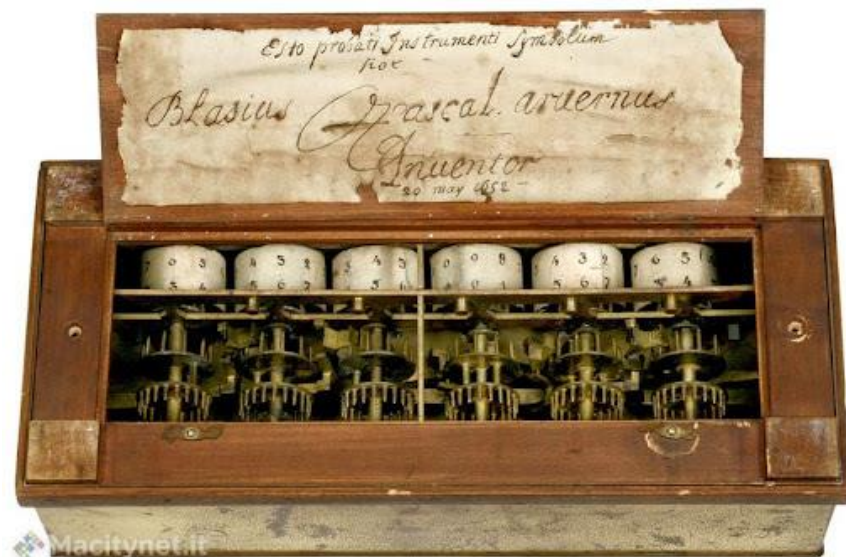 Esto probati Instrumenti Symbolum
hoc
Blasius Pascal. arvernus
Inventor
20 may 1652
Macitynet.it